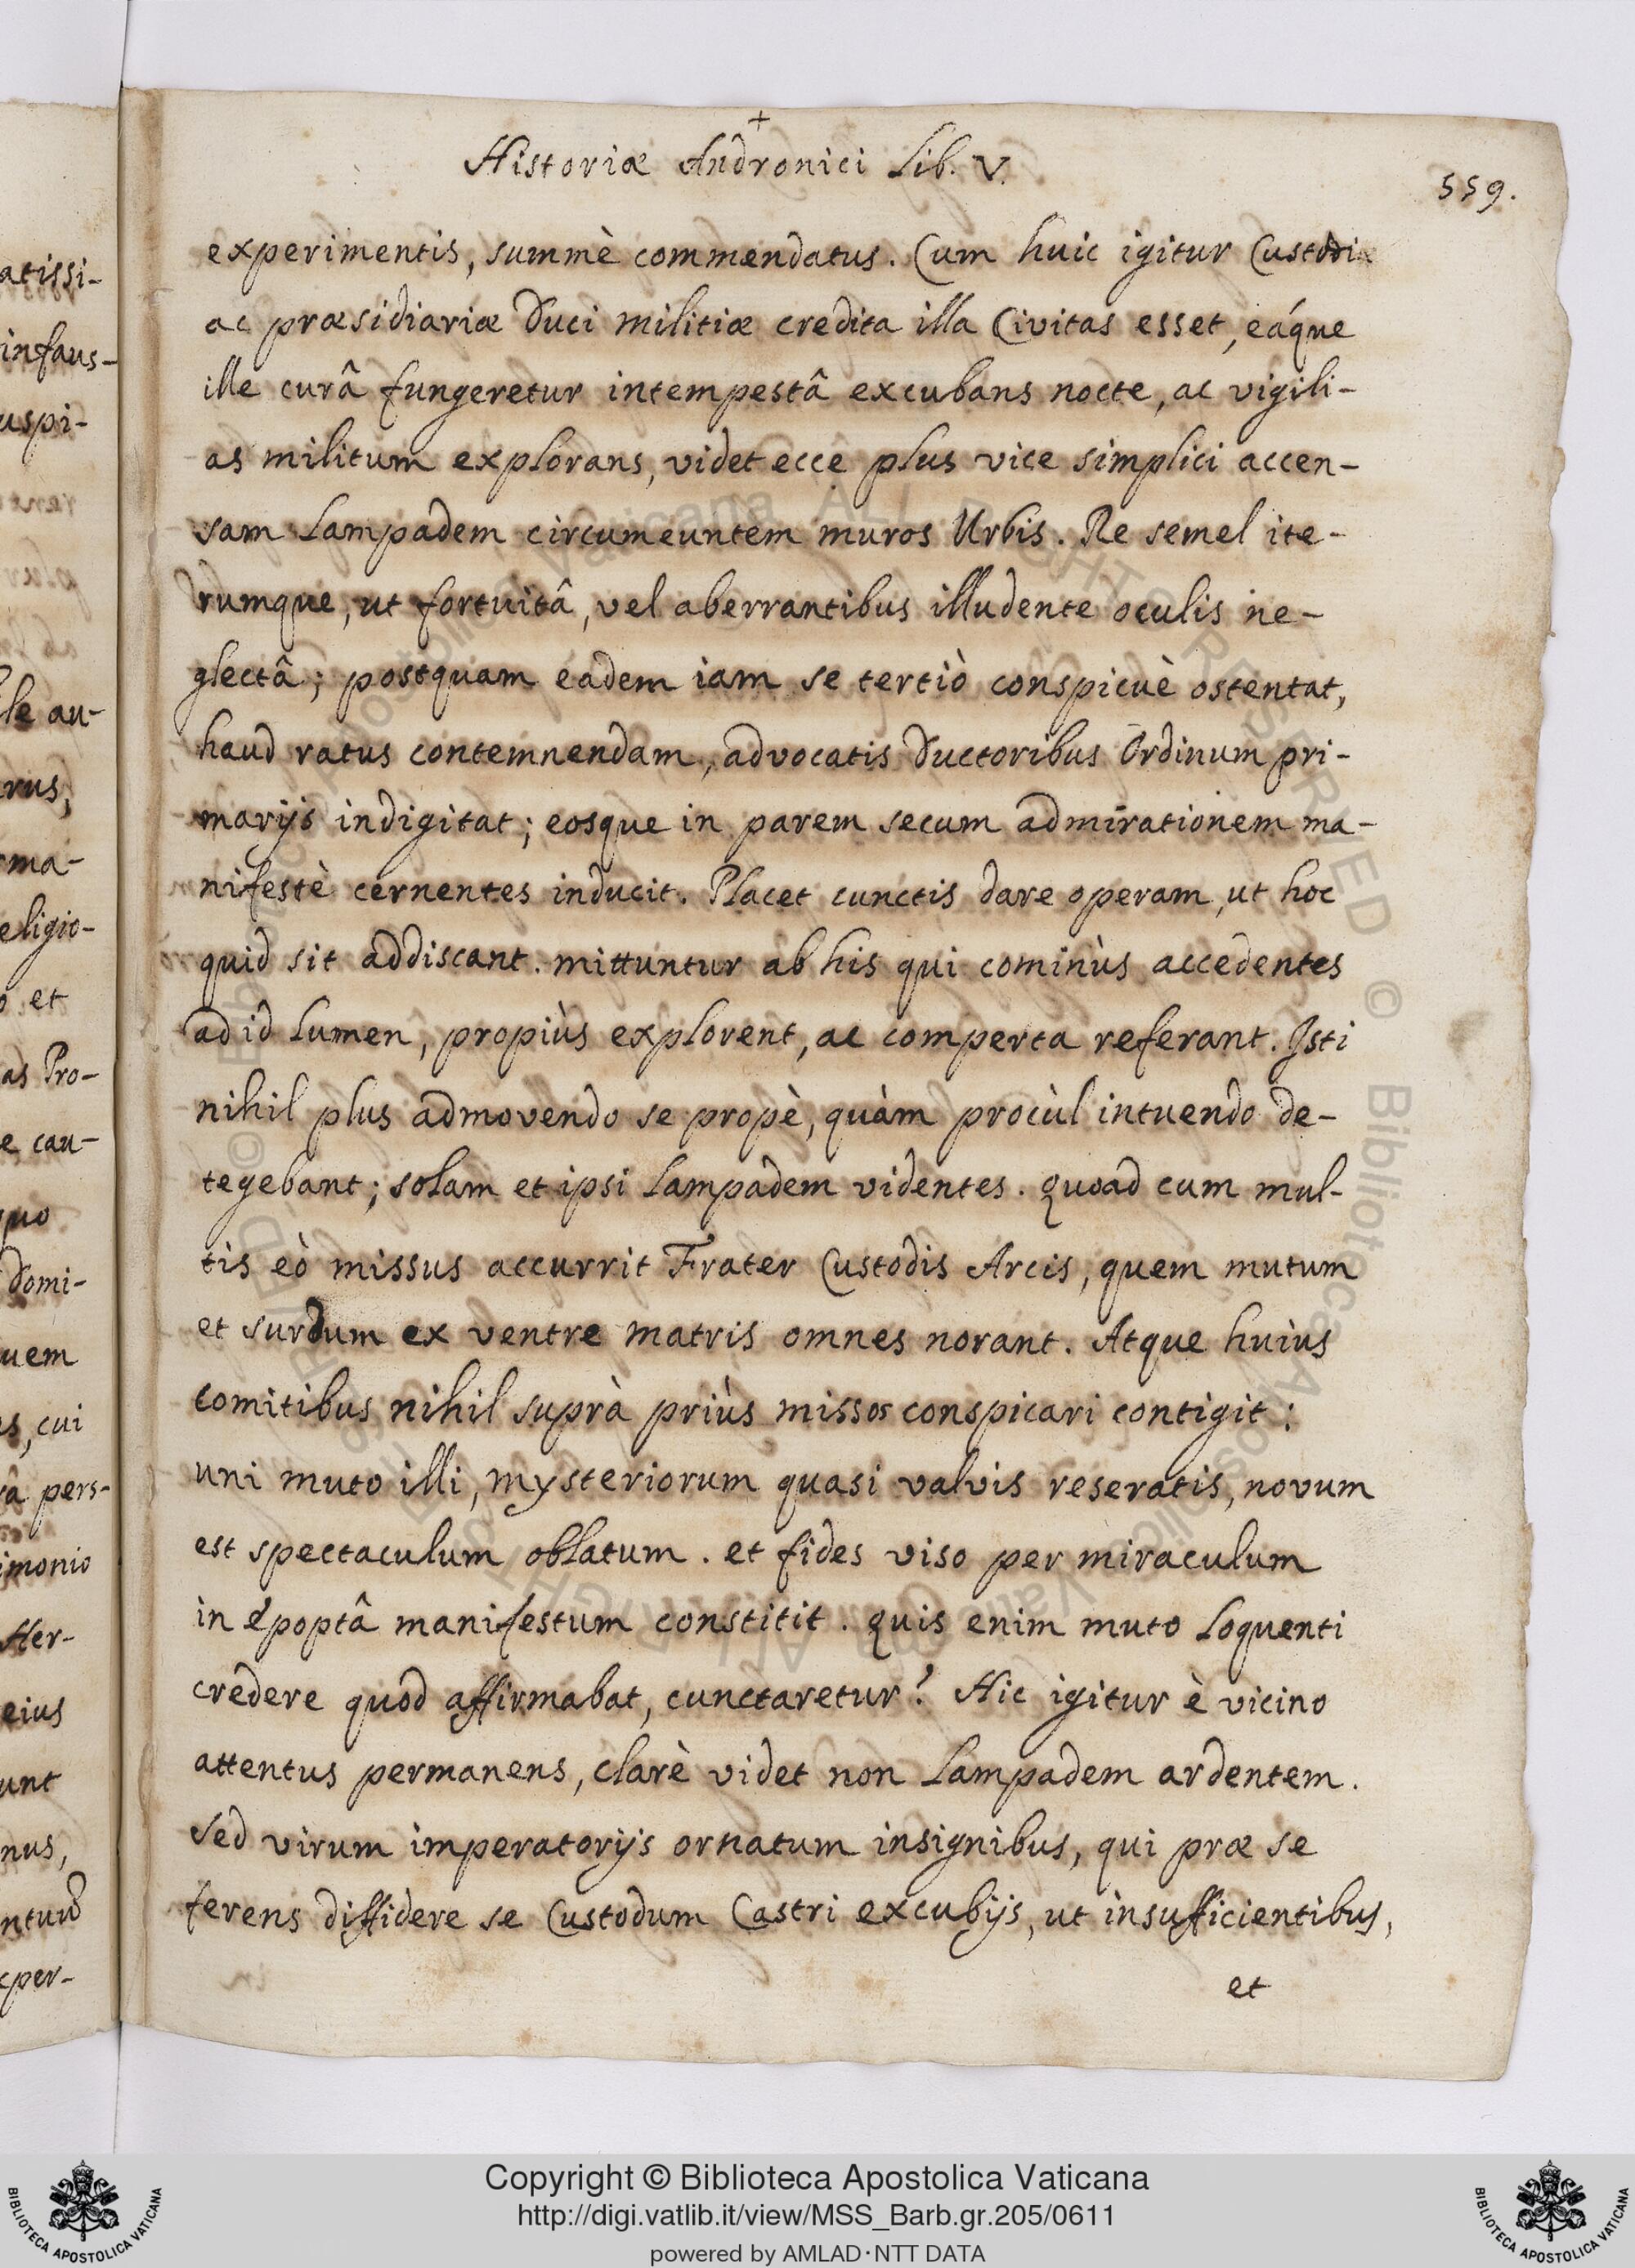 +
Historiæ Andronici Lib. V.
559.
experimentis, summè commendatus. Cum huic igitur Custodiæ
ac præsidiariæ Duci militiæ credita illa Civitas esset, eáque
ille curâ fungeretur intempestâ excubans nocte, ac vigili-
as militum explorans, videt ecce plus vice simplici accen-
sam Lampadem circumeuntem muros Urbis. Re semel ite-
rumque, ut fortuitâ, vel aberrantibus illudente oculis ne-
glectâ; postquam eadem iam se tertiò conspicuè ostentat,
haud ratus contemnendam, advocatis Ductoribus Ordinum pri-
marijs indigitat; eosque in parem secum admirationem ma-
nifestè cernentes inducit. Placet cunctis dare operam, ut hoc
quid sit addiscant. mittuntur ab his qui cominùs accedentes
ad id Lumen, propiùs explorent, ac comperta referant. Isti
nihil plus admovendo se propè, quàm procùl intuendo de-
tegebant; solam et ipsi Lampadem videntes. quoad cum mul-
tis eò missus accurrit Frater Custodis Arcis, quem mutum
et surdum ex ventre matris omnes norant. Atque huius
comitibus nihil suprà priùs missos conspicari contigit:
uni muto illi, mysteriorum quasi valvis reseratis, novum
est spectaculum oblatum. et fides viso per miraculum
in epoptâ manifestum constitit. quis enim muto Loquenti
credere quod affirmabat, cunctaretur? Hic igitur è vicino
attentus permanens, clarè videt non Lampadem ardentem.
sed virum imperatorijs ornatum insignibus, qui præ se
ferens diffidere se Custodum Castri excubijs, ut insufficientibus,
et
atissi-
infaus-
uspi-
le au-
rus,
ma-
eligio-
o et
as Pro-
e cau-
quo
Domi-
uem
s, cui
â pers-
imonio
Her-
eius
unt
nus,
xper-
Copyright © Biblioteca Apostolica Vaticana
http://digi.vatlib.it/view/MSS_Barb.gr.205/0611
powered by AMLAD·NTT DATA
BIBLIOTECA APOSTOLICA VATICANA
BIBLIOTECA APOSTOLICA VATICANA